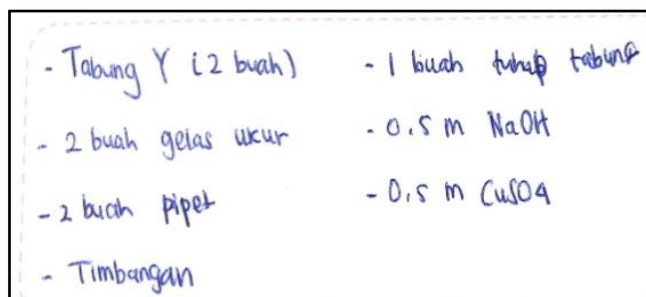 - Tabung Y (2 buah)
- 2 buah gelas ukur
- 2 buah pipet
- Timbangan
- 1 buah tutup tabung
- 0.5 m NaOH
- 0.5 m CuSO4